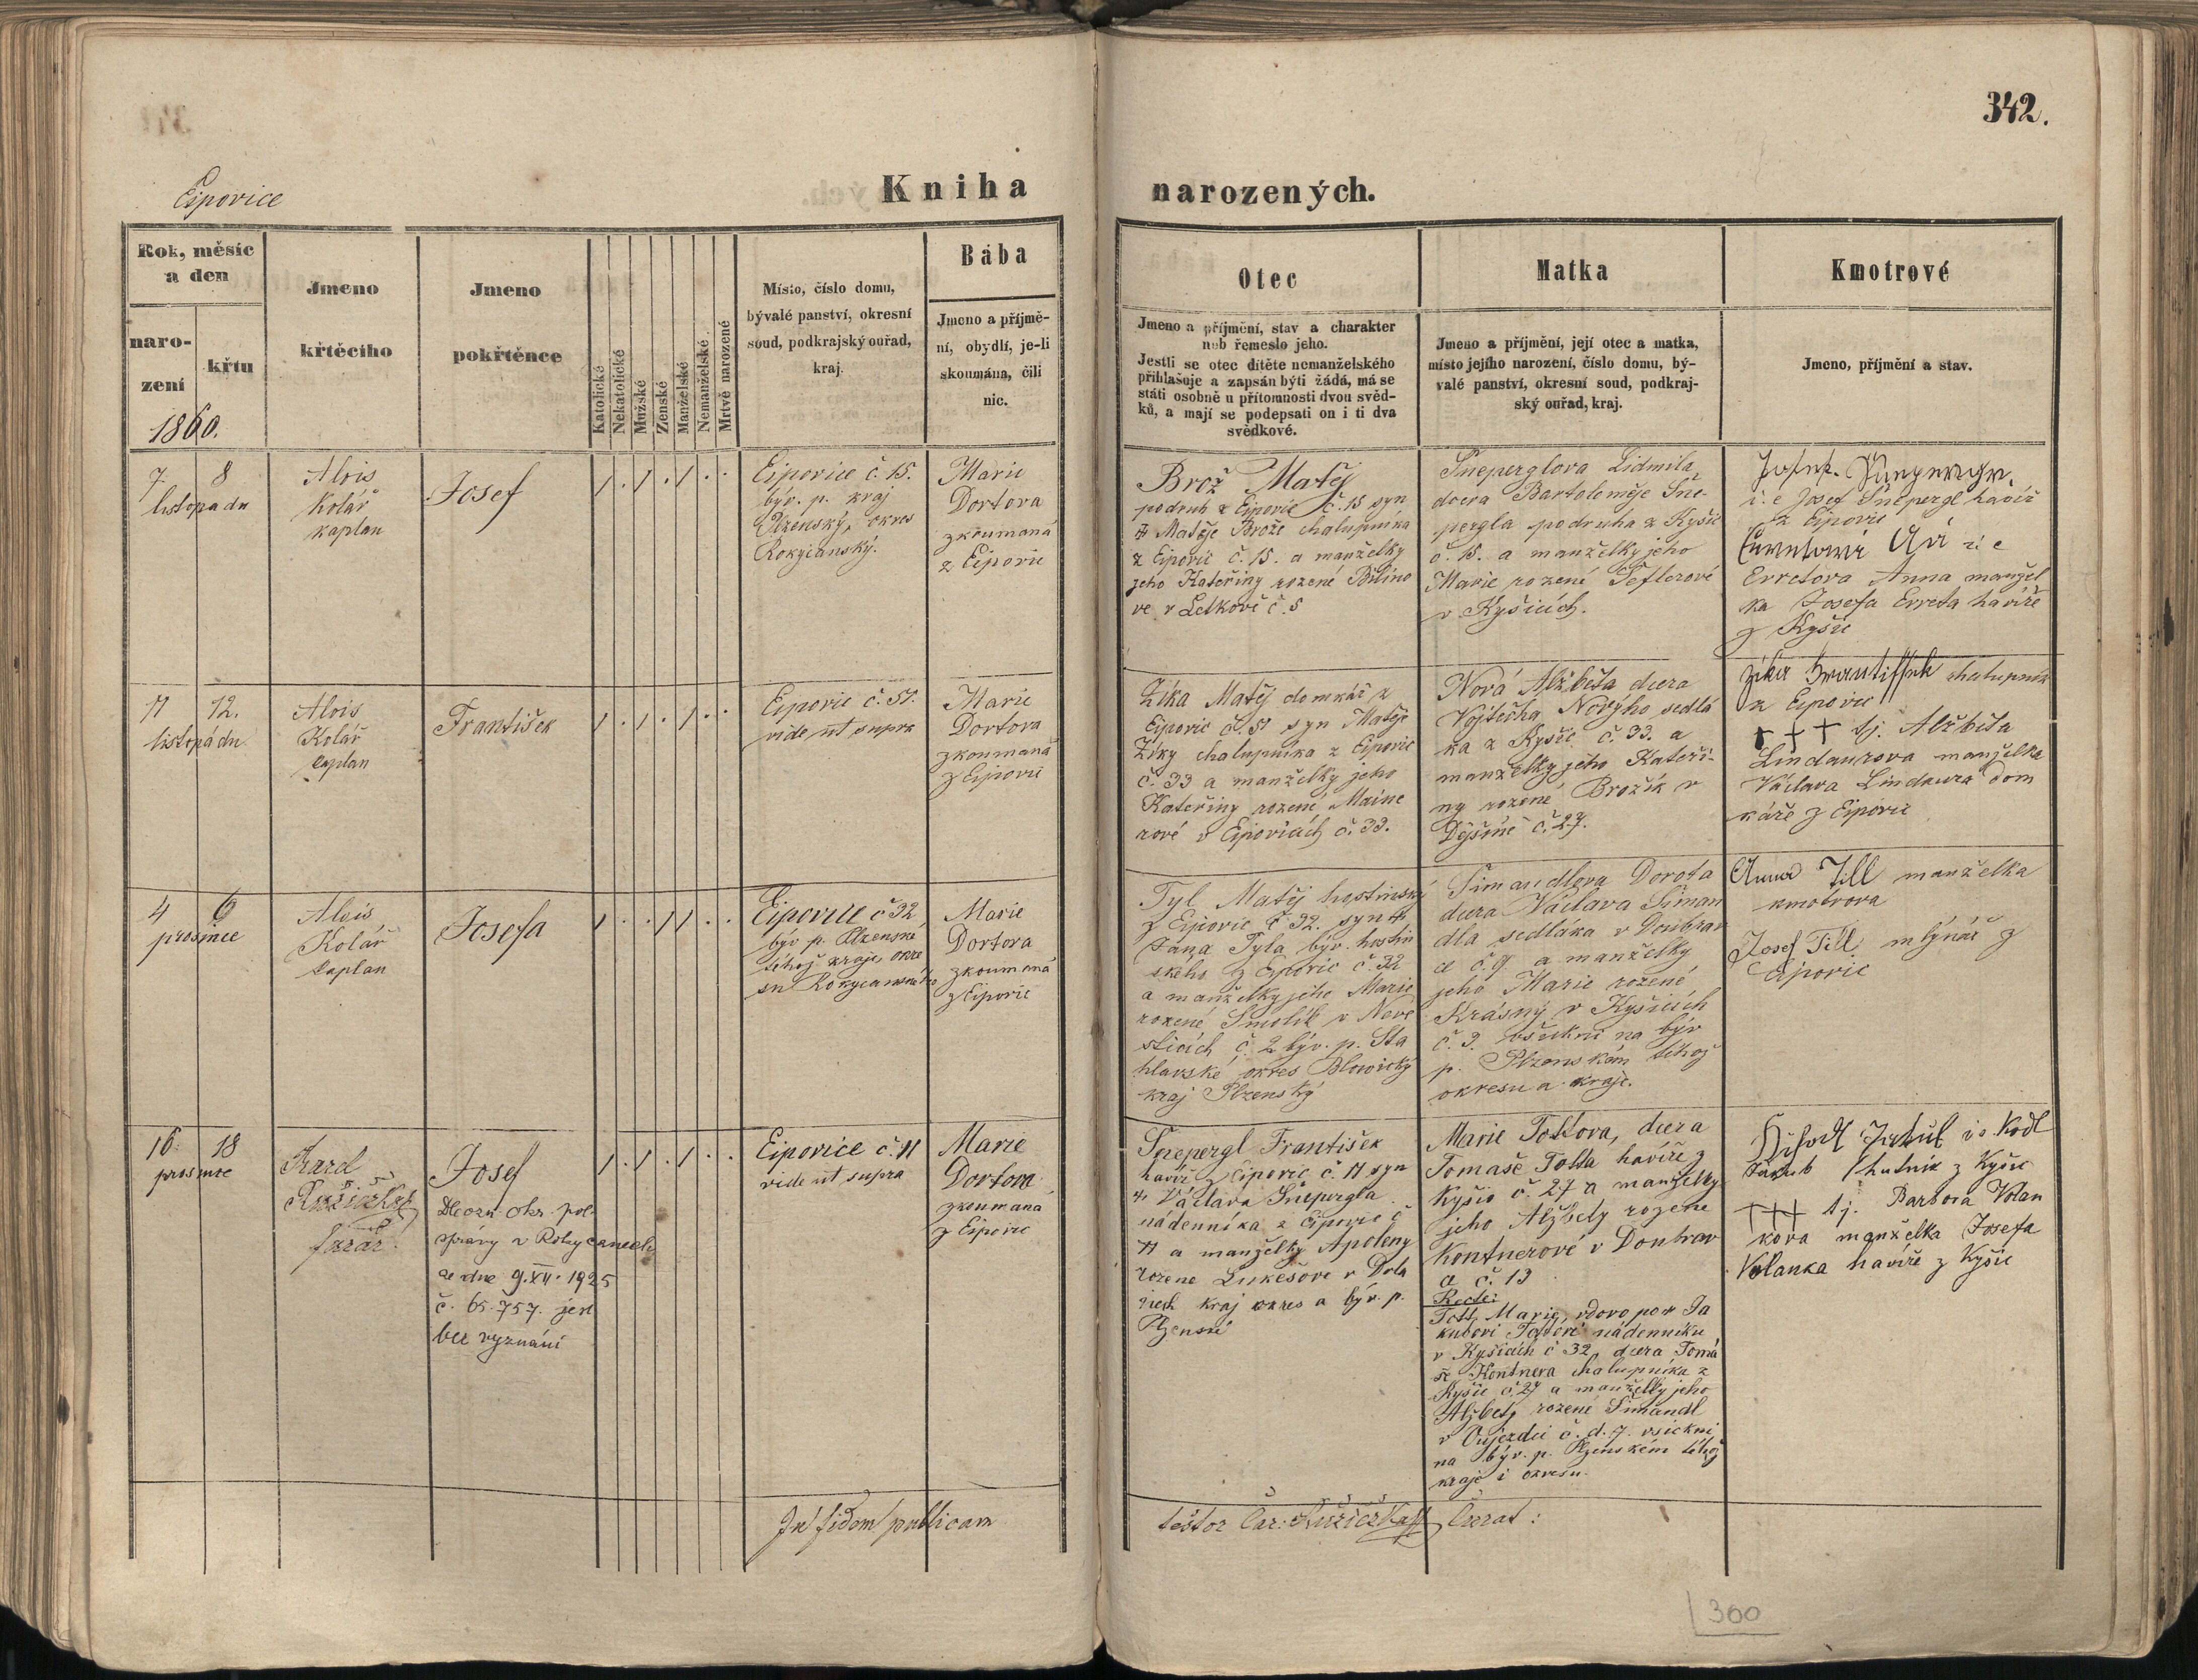 342.
Eipovice
Kniha narozených.
Rok, měsíc
a den
naro-
zení
křtu
1860.
Jmeno
křtěcího
Jmeno
pokřtěnce
Katolické
Nekatolické
Mužské
Ženské
Manželské
Nemanželské
Mrtvě narozené
Místo, číslo domu,
bývalé panství, okresní
soud, podkrajský ouřad,
kraj.
Bába
Jmeno a příjmě-
ní, obydlí, je-li
skoumána, čili
nic.
Otec
Jmeno a příjmění, stav a charakter
neb řemeslo jeho.
Jestli se otec dítěte nemanželského
přihlašuje a zapsán býti žádá, má se
státi osobně u přítomnosti dvou svěd-
ků, a mají se podepsati on i ti dva
svědkové.
Matka
Jmeno a příjmění, její otec a matka,
místo jejího narození, číslo domu, bý-
valé panství, okresní soud, podkraj-
ský ouřad, kraj.
Kmotrové
Jmeno, příjmění a stav.
7. 8
listopadu
Alois
Kolář
kaplan
Josef
1 . 1 . 1 . .
Eipovice č. 15.
býv. p. kraj
Plzenský, okres
Rokycanský.
Marie
Dortova
zkoumaná
z Eipovic
Brož Matěj
podruh z Eipovic č. 15 syn
† Matěje Brože chalupníka
z Eipovic č. 15. a manželky
jeho Kateřiny rozené Bílino
ve v Letkově č. 5
Šneperglova Lidmila,
dcera Bartoloměje Šne-
pergla podruha z Kyšic
č. 15. a manželky jeho
Marie rozené Šeflerové
v Kyšicích.
Josef
i. e Josef Šnepergl havíř
z Eipovic
i e
Erretova Anna manžel
ka Josefa Erreta havíře
z Kyšic
11 12.
listopadu
Alois
Kolář
caplan
František
1 . 1 . 1 . .
Eipovic č. 51.
vide ut supra
Marie
Dortova
zkoumaná
z Eipovic
Zíka Matěj domkář z
Eipovic č. 51 syn Matěje
Zíky chalupníka z Eipovic
č. 33 a manželky jeho
Kateřiny rozené Maine
rové v Eipovicích č. 33.
Nová Alžběta dcera
Vojtěcha Nového sedlá
ka z Kyšic č. 33. a
manželky jeho Kateři-
ny rozené Brožík v
Dýšině č. 27.
Zíka Frantissek chalupník
z Eipovic
† † † tj. Alžběta
Lindaurova manželka
Václava Lindaura dom
káře z Eipovic
4 6
prosince
Alois
Kolář
kaplan
Josefa
1 . . 1 1 . .
Eipovice č 32
býv p. Plzenské
téhož kraje, okre
su Rokycanského
Marie
Dortova
zkoumaná
z Eipovic
Tyl Matěj hostinský
z Eipovic č. 32. syn †
Jana Tyla býv. hostin
ského z Eipovic č. 32
a manželky jeho Marie
rozené Smolík v Neve
sticích č. 2 býv. p. Šta
hlavské okres Blovický
kraj Plzenský
Šimandlova Dorota
dcera Václava Šiman
dla sedláka v Doubrav
ce č. 9 a manželky
jeho Marie rozené
Krásný v Kyšicích
č. 3. všickni na býv
p. Plzenském téhož
okresu a kraje.
Anna Till manželka
kmotrova
Josef Till mlýnář z
Eipovic
16 18
prosince
Karel
Růžička
farář.
Josef
Dle ozn. okr. pol.
správy v Rokycanech
ze dne 9. XII. 1925
č. 65.757. jest
bez vyznání
1 . 1 . 1 . .
Eipovice č. 11
vide ut supra
Marie
Dortova
zkoumaná
z Eipovic
Šnepergl František
havíř z Eipovic č. 11 syn
† Václava Šnepergla
nádenníka z Eipovic č
11 a manželky Apoleny
rozené Lukešove v Dola
nech kraj okres a býv. p.
Plzenské
Marie Tottova, dcera
Tomáše Totta havíře z
Kyšic č. 27 a manželky
jeho Alžbety rozene
Kontnerové v Doubrav
ce č. 13
Recte:
Tott Marie, vdova po †. Ja
kubovi Tottovi nádenníku
v Kyšicích č 32, dcera Tomá
še Kontnera chalupníka z
Kyšic č. 27 a manželky jeho
Alžbety rozené Šimandl
v Oujezdci č. d. 7. všickni
na býv. p. Plzenském téhož
kraje i okresu.
i e Kodl
Jakub chutník z Kyšic
††† tj. Barbora Volan
kova manželka Josefa
Volanka havíře z Kyšic
In fidem publicam
testor Car: Růžička Curat:
300